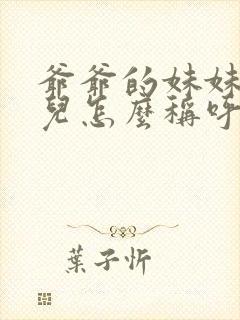 爺爺的妹妹
兒怎麼稱呼
葉子忻